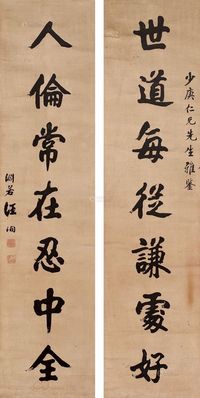 少庚仁兄先生雅鉴
世道每從謙處好
人倫常在忍中全
淵若汪洵